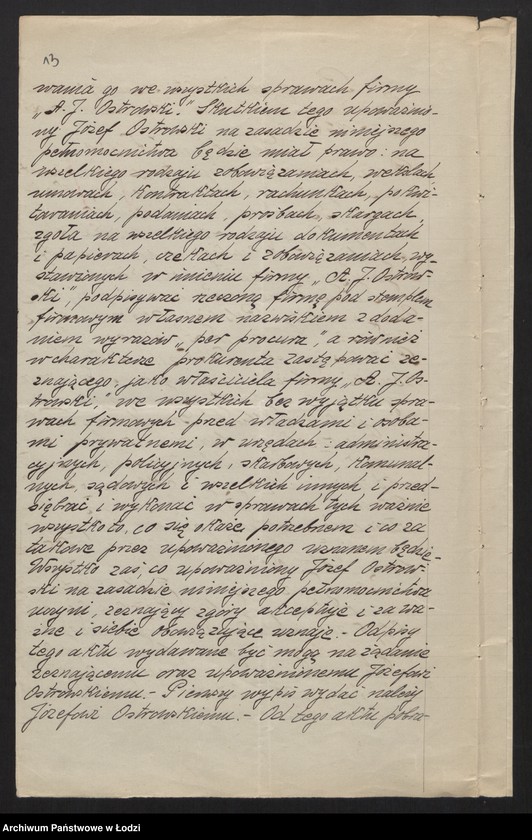 13
wania go we wszystkich sprawach firmy
„A. J. Ostrowski." Skutkiem tego upoważnio-
ny Józef Ostrowski na zasadzie niniejszego
pełnomocnictwa będzie miał prawo: na
wszelkiego rodzaju zobowiązaniach, wekslach
umowach, kontraktach, rachunkach, pokwi-
towaniach, podaniach, prośbach, skargach,
zgoła na wszelkiego rodzaju dokumentach
i papierach, czekach i zobowiązaniach, wy-
stawionych w imieniu firmy „A. J. Ostrow-
ski", podpisywać rzeczoną firmę pod stemplem
firmowym własnem nazwiskiem z doda-
niem wyrazów „per procura", a również
w charakterze prokurenta zastępować ze-
znającego, jako właściciela firmy „A. J. Os-
trowski," we wszystkich bez wyjątku spra-
wach firmowych przed władzami i osoba-
mi prywatnemi, w urzędach: administra-
cyjnych, policyjnych, skarbowych, komunal-
nych, sądowych i wszelkich innych, i przed-
siębrać i wykonać w sprawach tych ważnie
wszystko to, co się okaże potrzebnem i co za
takowe przez upoważnionego uznanem będzie.
Wszystko zaś, co upoważniony Józef Ostrow-
ski na zasadzie niniejszego pełnomocnictwa
uczyni, zeznający zgóry akceptuje i za wa-
żne i siebie obowiązujące uznaje. - Odpisy
tego aktu wydawane być mogą na żądanie
zeznającemu oraz upoważnionemu Józefowi
Ostrowskiemu. - Pierwszy wypis wydać należy
Józefowi Ostrowskiemu. - Od tego aktu pobra-
Archiwum Państwowe w Łodzi